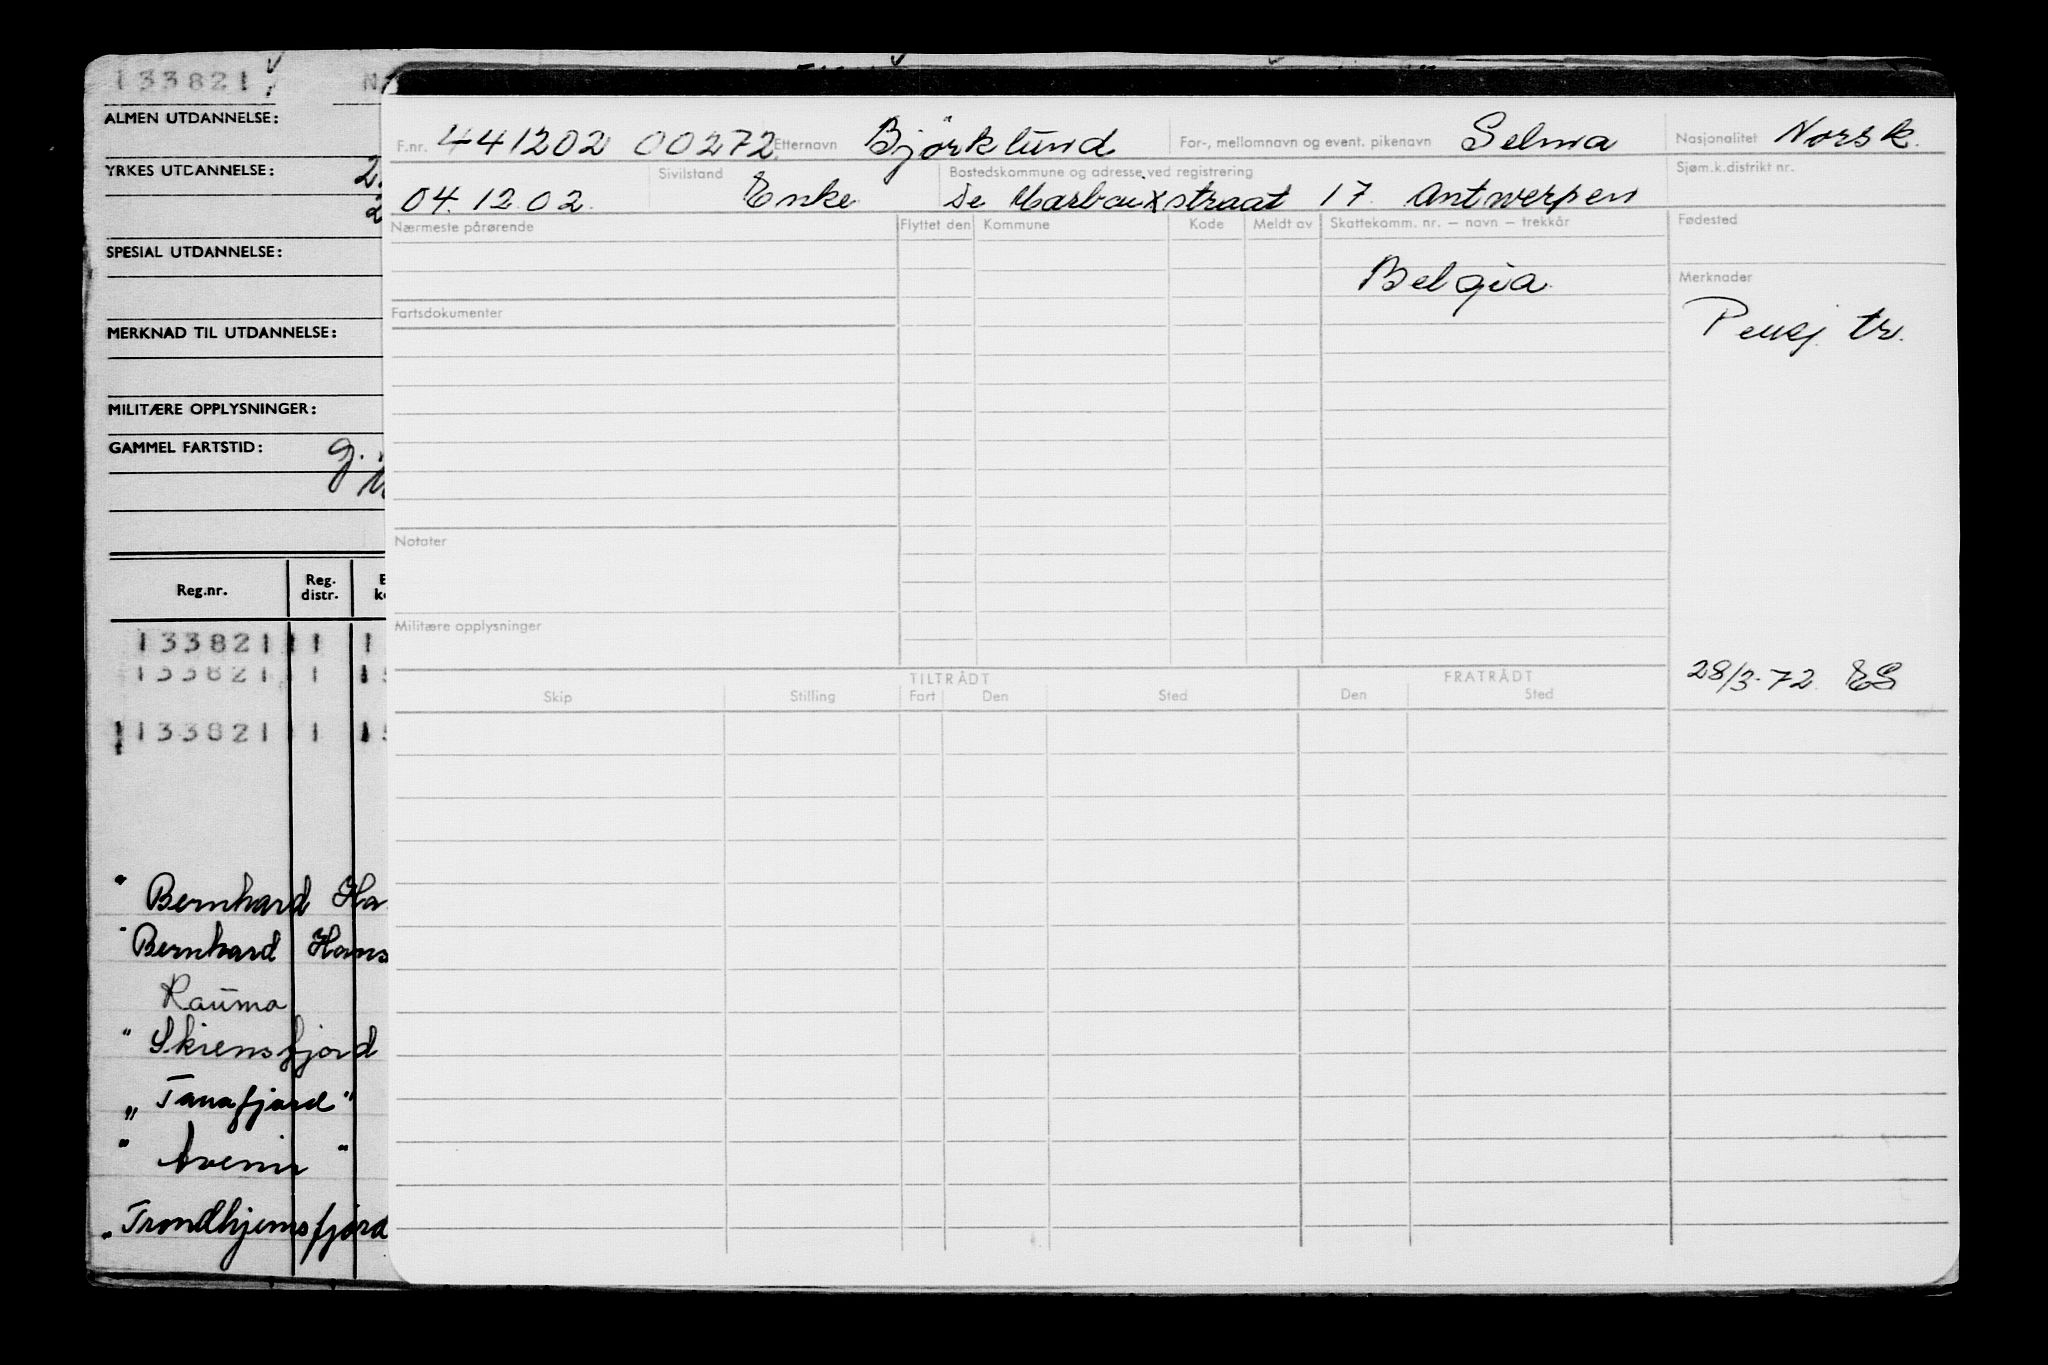 133821
ALMEN UTDANNELSE:
YRKES UTDANNELSE:
SPESIAL UTDANNELSE:
MERKNAD TIL UTDANNELSE:
MILITÆRE OPPLYSNINGER:
GAMMEL FARTSTID:
Reg.nr. Reg. distr.
133821 1 1
133821 1 15
133821 1 15
" Bernhard Ha
" Bernhard Hans
Rauma
" Skiensfjord
„ Tanafjord "
" Avenir "
„ Trondhjemsfjord
F.nr. 441202 00272 Etternavn Björklund For-, mellomnavn og event. pikenavn Selma Nasjonalitet Norsk.
04.12.02. Sivilstand Enke Bostedskommune og adresse ved registrering De Marbaixstraat 17 Antwerpen Sjøm.k.distrikt nr.
Nærmeste pårørende Flyttet den Kommune Kode Meldt av Skattekomm. nr. – navn – trekkår Fødested
Belgia
Merknader
Pensj. tr.
Fartsdokumenter
Notater
Militære opplysninger
28/3-72 ES
TILTRÅDT FRATRÅDT
Skip Stilling Fart Den Sted Den Sted